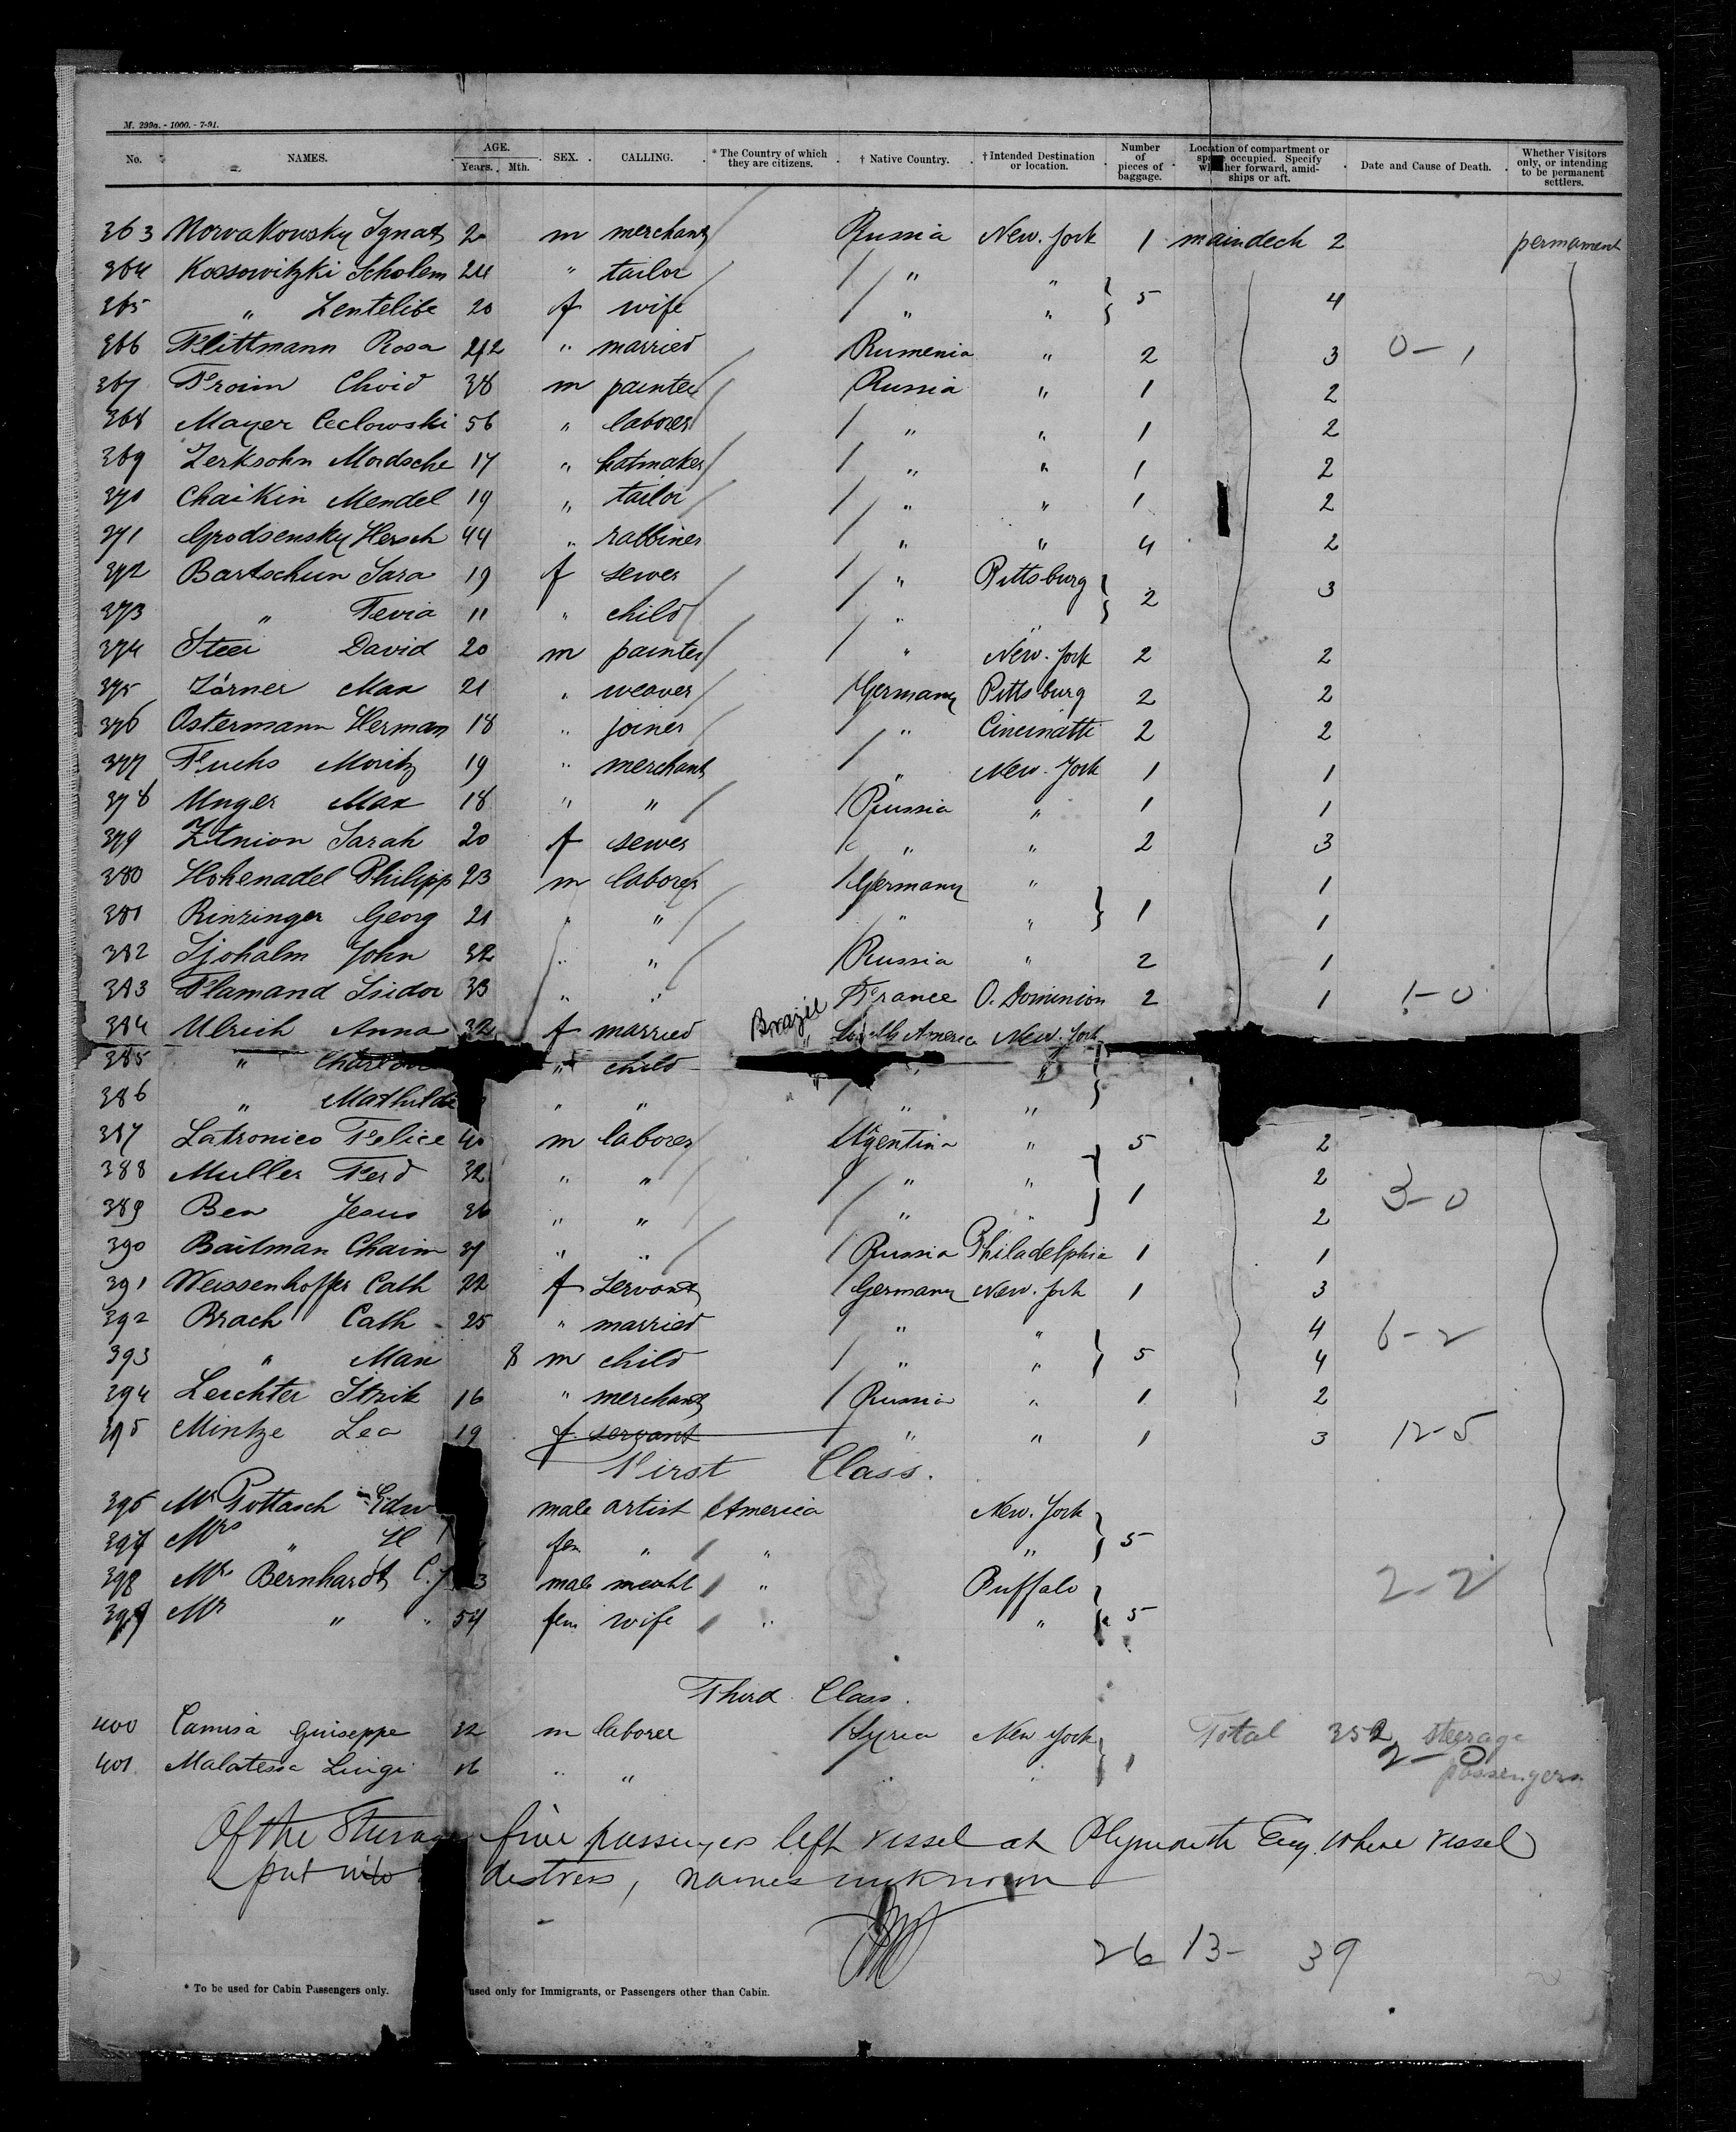 M. 299a. - 1000. - 7-91.
No. NAMES. AGE. Years. Mth. SEX. CALLING. * The Country of which they are citizens. † Native Country. † Intended Destination or location. Number of pieces of baggage. Location of compartment or space occupied. Specify whether forward, amidships or aft. Date and Cause of Death. Whether Visitors only, or intending to be permanent settlers.
363 Morvakowsky Ignatz m merchant Russia New. York 1 maindeck 2 permament
364 Kossowitzki Scholem 24 " tailor / " "
365 " Zentelibe 20 f wife / " " } 5 4
366 Flittmann Rosa " married Rumenia " 2 3 0-1
367 Froim Chvid 38 m painter Russia " 1 2
368 Mayer Ceclowski 56 " laborer / " " 1 2
369 Zerksohn Mordsche 17 " hatmaker / " " 1 2
370 Chaikin Mendel 19 " tailor / " " 1 2
371 Grodsensky Hersch 44 " rabbiner / " " 4 2
372 Bartschun Sara 19 f sewer / " Pittsburg } 2 3
373 " Tevia 11 " child " "
374 Steer David 20 m painter / " New. York 2 2
375 Zörner Max 21 " weaver / Germany Pittsburg 2 2
376 Ostermann Herman 18 " joiner / " Cincinatti 2 2
377 Fuchs Moritz 19 " merchant / " New. York 1 1
378 Unger Max 18 " " / Russia " 1 1
379 Zitnion Sarah 20 f sewer " " 2 3
380 Hohenadel Philipp 23 m laborer / Germany " 1
381 Rinzinger Georg 21 " " / " " } 1 1
382 Sjoholm John 32 " " / Russia " 2 1
383 Flamand Isidor 33 " " France O. Dominion 2 1 1-0
384 Ulrich Anna 32 f married Brazil South America New. York
385 " " child " "
386 " Mathilde " " / " "
387 Latronico Felice 40 m laborer Argentina " 5 2
388 Muller Ferd 32 " " / " " 2
389 Ben Jesus 36 " " / " " } 1 2 3-0
390 Baitman Chaim 37 " " / Russia Philadelphia 1 1
391 Weissenhoffer Cath 22 f servant / Germany New. York 1 3
392 Brach Cath 25 " married / " " 4 6-2
393 " Max 8 m child / " " } 5 4
394 Leichter Itzik 16 " merchant / Russia " 1 2
395 Mintze Lea 19 f servant / " " 1 3 12-5
First Class.
396 Mr Pottasch Edw male artist America New. York
397 Mrs " H fem " / " " } 5
398 Mr. Bernhardt C. J 3 male mercht / " Buffalo 2-2
399 Mrs " " 54 fem wife / " " } 5
Third Class.
400 Camisa Guiseppe 32 m laborer / Syria New York Total 352 steerage
401 Malatessa Luigi 16 " " " " } 1 2- passengers
Of the Steerage five passengers left vessel at Plymouth Eng. where vessel
put into distress, names unknown
26 13- 39
* To be used for Cabin Passengers only. used only for Immigrants, or Passengers other than Cabin.